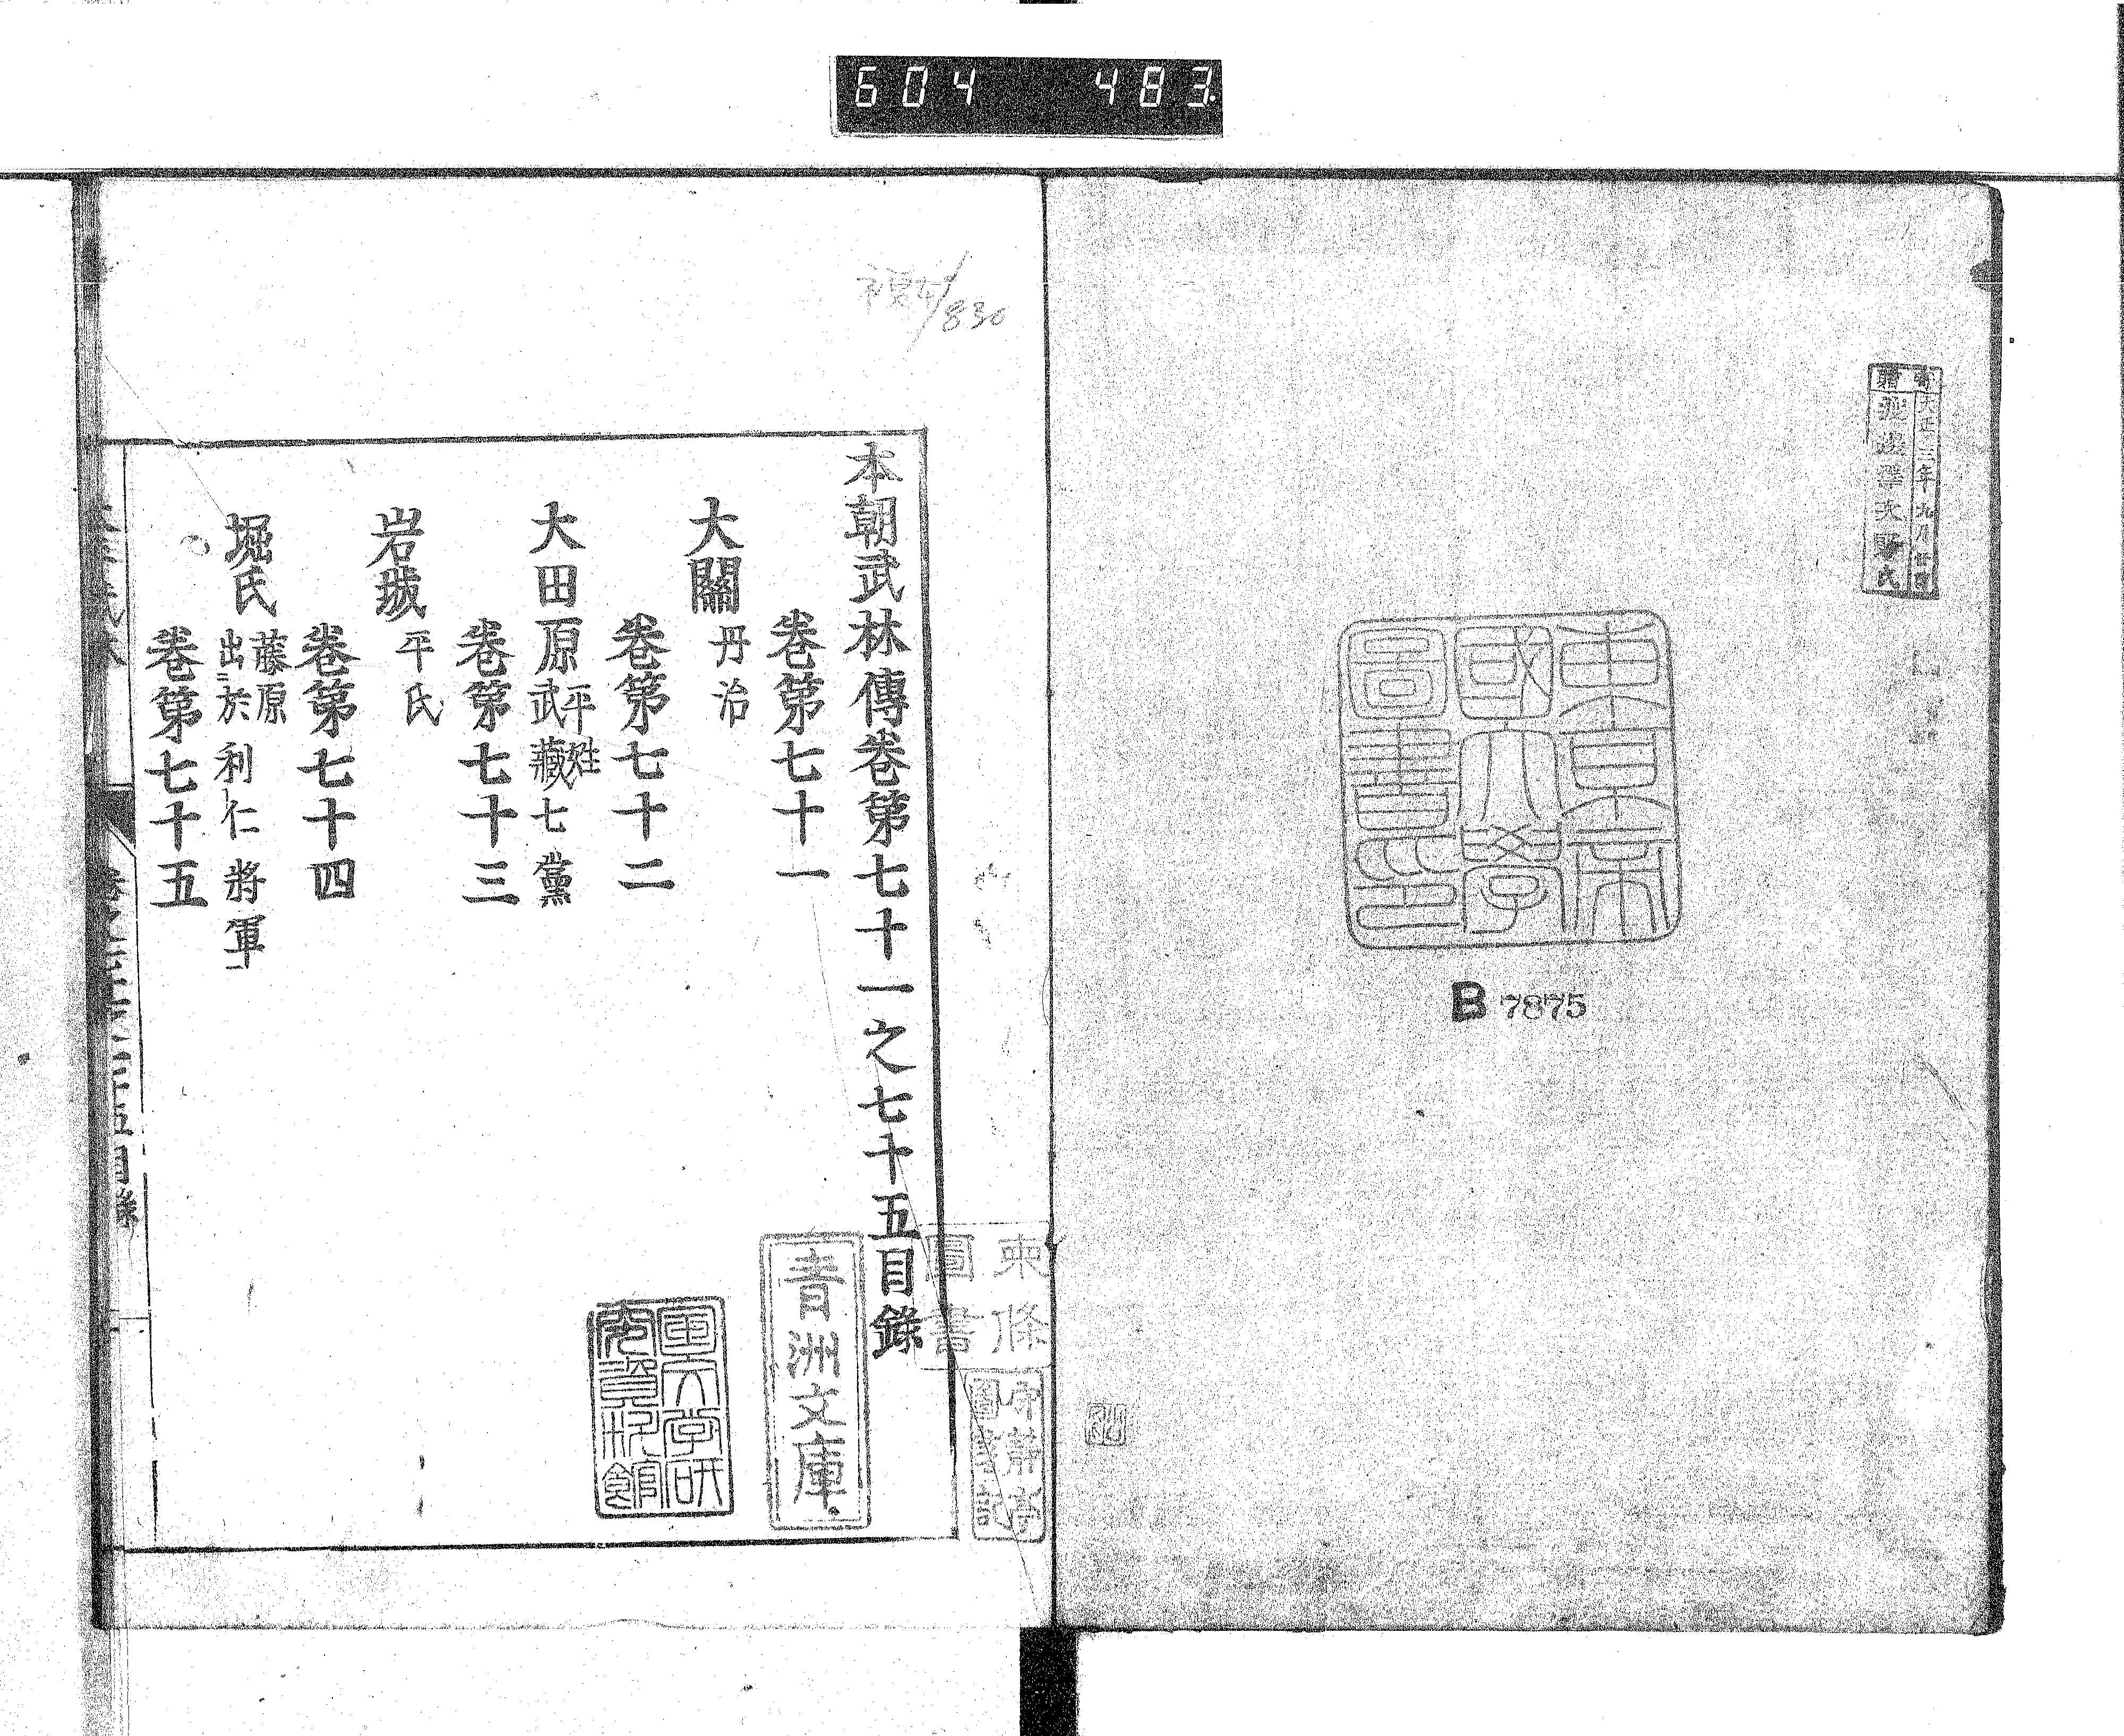 604 483
大正三年九月
東京帝
國大學
圖書印
B 7875
830
本朝武林傳卷第七十一之七十五目錄
卷第七十一
大關 丹治
卷第七十二
大田原 平姓 武藏七黨
卷第七十三
岩城 平氏
卷第七十四
堀氏 藤原 出於利仁將軍
卷第七十五
東條
圖書
青洲文庫